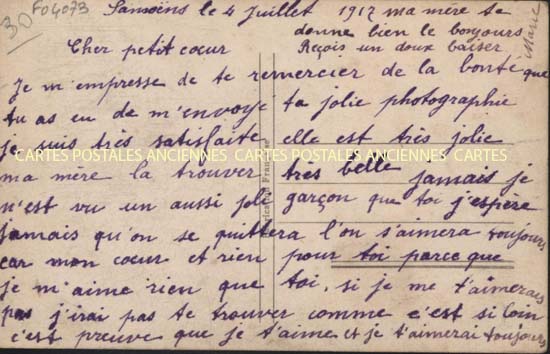 30 FO4073
Samoëns le 4 Juillet 1917 ma mère te
donne bien le bonjours
Cher petit cœur Reçois un doux baiser
Marie
Je m'empresse de te remercier de la bonté que
tu as eu de m'envoyé ta jolie photographie
je suis très satisfaite elle est très jolie
CARTES POSTALES ANCIENNES CARTES POSTALES ANCIENNES CARTES
ma mère la trouver très belle jamais je
n'est vu un aussi joli garçon que toi j'espère
jamais qu'on se quittera l'on s'aimera toujours
car mon cœur et rien pour toi parce que
je m'aime rien que toi, si je me t'aimerais
pas j'irai pas te trouver comme c'est si loin
c'est preuve que je t'aime et je t'aimerai toujours